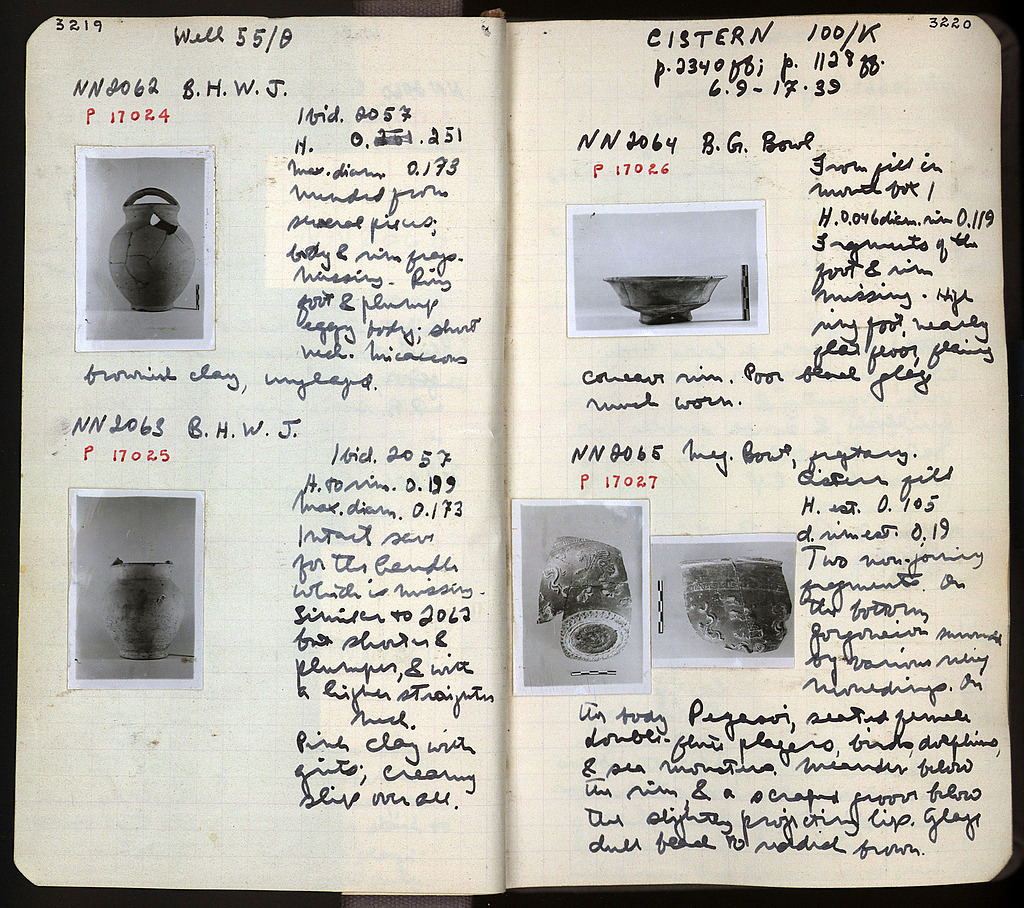 3219
Well 55/Θ
NN2062 B.H.W.J.
P 17024
Ibid. 2057
H. 0.251 .251
max. diam 0.173
mended from
several pieces;
body & rim frags.
missing. Ring
foot & plump
eggy body; short
neck. Micaceous
brownish clay, unglazed.
NN2063 B.H.W.J.
P 17025
Ibid. 2057
H. to rim. 0.199
max. diam. 0.173
Intact save
for the handle
which is missing.
Similar to 2062
but shorter &
plumper, & with
a higher straighter
neck.
Pink clay with
grits; creamy
slip over all.
3220
CISTERN 100/K
p. 2340 ff; p. 1128 ff.
6.9-17-39
NN2064 B.G. Bowl
P 17026
From fill in
mouth box 1
H. 0.046 diam. rim 0.119
Fragments of the
foot & rim
missing. High
ring foot, nearly
flat floor, flaring
concave rim. Poor black glaze
much worn.
NN2065 Meg. Bowl, fragtary.
P 17027
Cistern fill
H. est. 0.105
d. rim est. 0.19
Two non-joining
fragments. On
the bottom
gorgoneion surrounded
by various ring
mouldings. On
the body Pegasoi, seated female
double-flute players, birds, dolphins,
& sea monsters. Meander below
the rim, & a scraped groove below
the slightly projecting lip. Glaze
dull black to reddish brown.